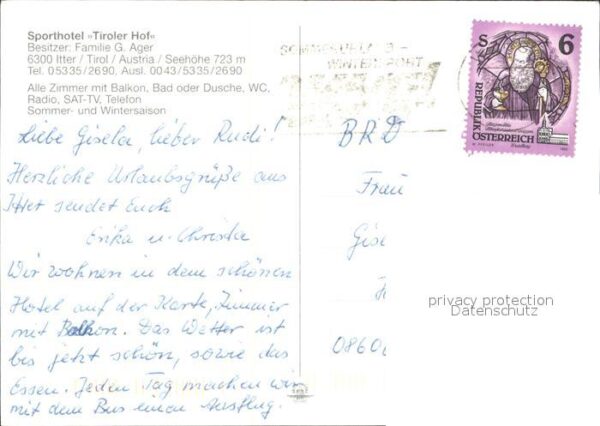 Sporthotel »Tiroler Hof«
Besitzer: Familie G. Ager
6300 Itter / Tirol / Austria / Seehöhe 723 m
Tel. 05335/2690, Ausl. 0043/5335/2690
Alle Zimmer mit Balkon, Bad oder Dusche, WC,
Radio, SAT-TV, Telefon
Sommer- und Wintersaison
Liebe Gisela, lieber Rudi!
Herzliche Urlaubsgrüße aus
Itter sendet Euch
Erika u. Christa
Wir wohnen in dem schönen
Hotel auf der Karte, Zimmer
mit Balkon. Das Wetter ist
bis jetzt schön, sowie das
Essen. Jeden Tag machen wir
mit dem Bus einen Ausflug.
WINTERSPORT
S 6
REPUBLIK
ÖSTERREICH
BRD
Frau
Gise
privacy protection
Datenschutz